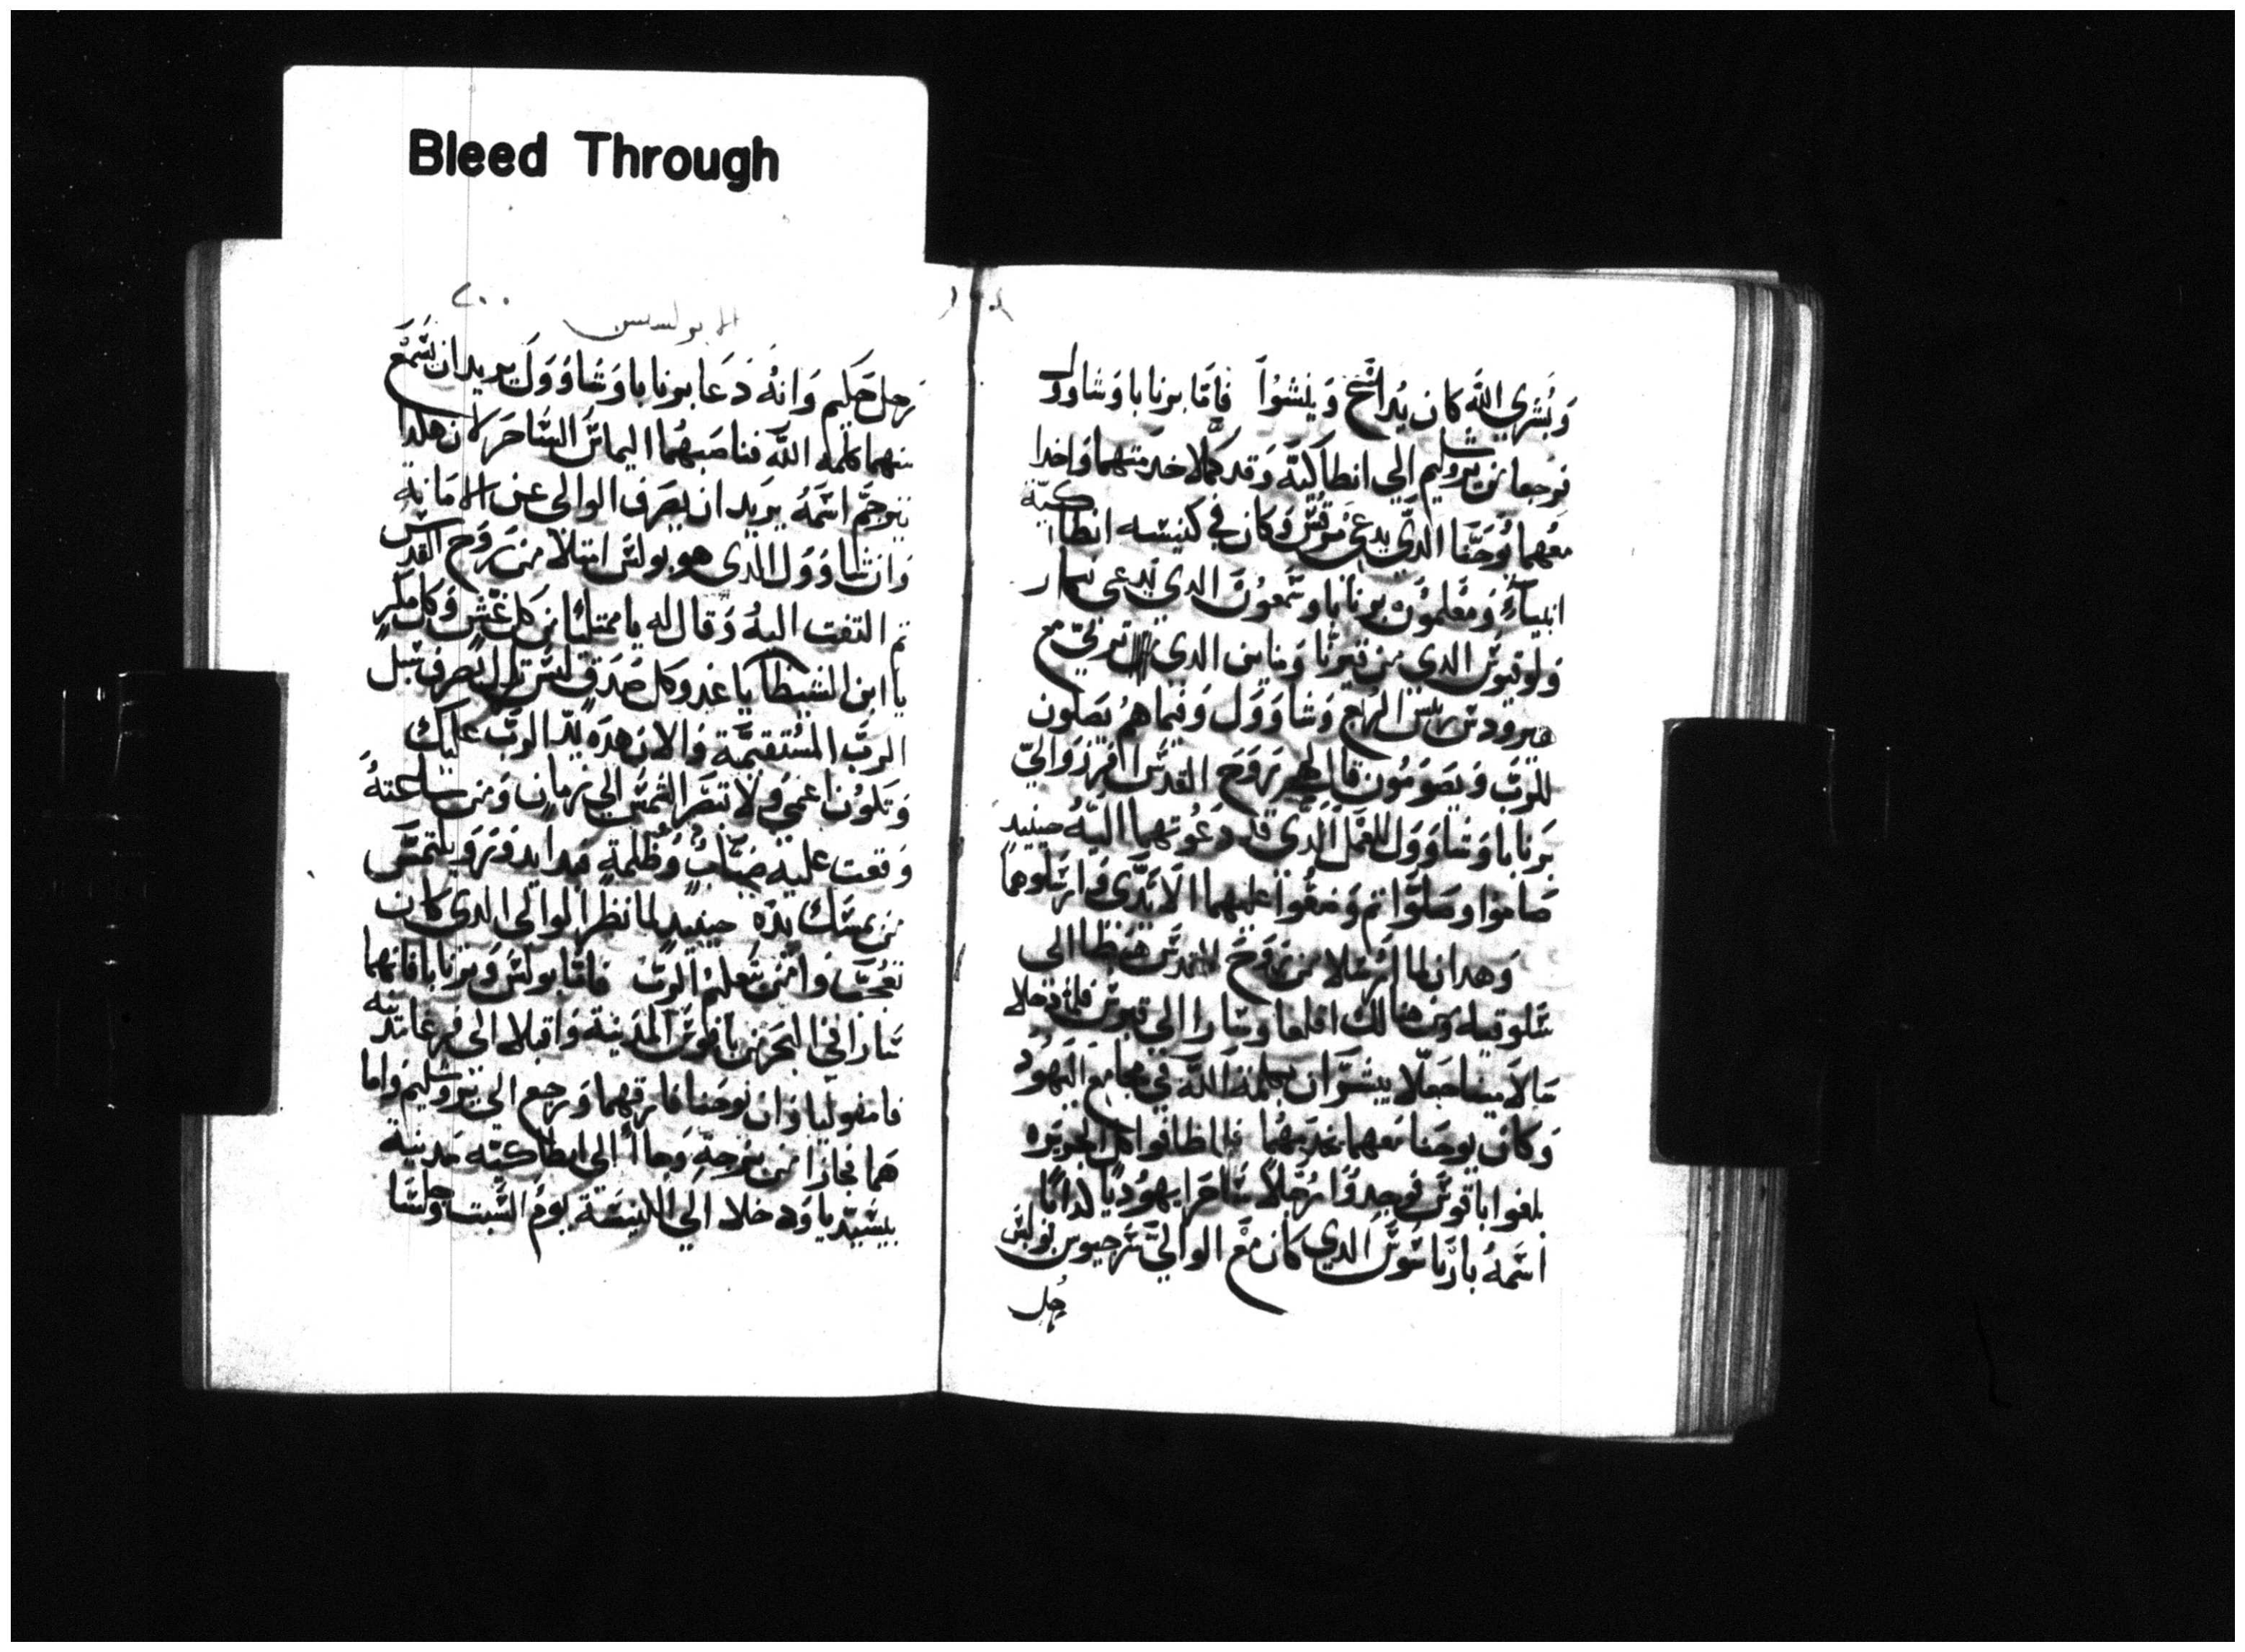 Bleed Through
وَبُشري الله كان يُدَاتَخ وَينشوُا فَاَمَّا برنابا وَشاوول
فرجعا من يروشليم الي انطاكيّه وَقد كملا خدمتهما وَاخدا
معهما يُوحَنّا الدّي يدعَي مَرقسَ وَكان في كنيسه انطاكيّه
انبياءُ وَمعَلمُون برنابا وشمعُون الدي يدعي نيجار
وَلوقيوسَ الدي من قيرنا وَمناين الدي تربي مع
هيرودس ريَيسَ الربع وَشاوَوَل وَفيماهمُ يصَلون
للربَ وَيصَومُون قال لهم رَوَح القدسَ افرزوَا ليّ
بَرنابا وَشاوَوَل للعَمَل الدَّي قد دعَوتهما اليهُ حينيد
صَامَوا وصَلوَّا ثم وَضعُوا عليهما الاَيدَّي وَارسَلوهما
وَهدان لما ارسَلا من رَوَح القدسَ هَبَطا الي
سَلوقيه وَمن هنالك اقلعا وسَارا الي قبرسَ فلما دخلا
سَالاَمينا جَعلا يبشرَّان بكلمة الله في مجامع اليَهُود
وَكان يوحَنا مَعهما يخدمهُما فلما طافوا كل الجزيَره
بلغوا بافوسَ فوَجدوَا رَجلاً سَاحرَا يهوُديًا كدابًا
اسَمهُ بارياشوَسَ الدي كان مَع الوالي سَرجيوس بَولسَ
رجل
٢٠٠
الابركسيس
رَجل حَكيم وَانهُ دَعَا برنابا وَشاوَوَل يريد ان يسَمَع
منهما كلمة اللّه فناصَبهُما اليماسَ السَاحرَ لان هكدا
يترجَم اسَمهُ يرَيد ان يصَرَف الوالي عَن الامَانه
وَان شاوَوَل الدي هو بولسَ امتلا من رَوَح القدسَ
ثم التفت اليهُ وَقال له يا ممتليًا من كل غَشٍ وَكل مَكرٍ
يا ابن الشيطان يا عَدو كل صَدقٍ لسَت تزال تصَرف سَبل
الربَ المسَتقيمَة وَالان هَده يدّ الربَ عَليك
وَتكوُن اعَمي وَلا تبصَر الشمسَ الي زمانٍ وَمن ساعَتهُ
وَقعت عليهُ ضبَابُ وَظلمة فبدا يدوَر وَيلتمسَ
من يمسَك بيدَه حينيدٍ لما نظر الوالي الدي كان
تعجَبَ وَامَن بتعليم الربَ فامَا بولسَ وَبرنابا فانهما
سَارا في البحَر من بافوسَ المدَينة وَاقبلا الي فرغا مَدينه
فامفوليا وَان يوحَنا فارقهما وَرجع الي يروشليم وَاما
هَما فجازا من بَرجة وَجاا الي انطاكيّه مَدينة
بيسَيديا وَدخلا الي الكنيسَة يوم السَبت وَجلسَا